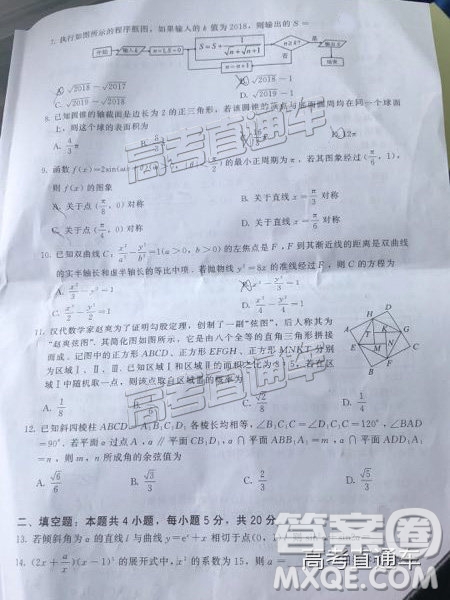 7. 执行如图所示的程序框图，如果输入的 k 值为 2018，则输出的 S =
开始 输入k n=1,S=0 S=S+ 1/(√n+√(n+1)) n≥k? 是 输出S
否 n=n+1 结束
A. √2018－√2017 B. √2018－1
C. √2019－√2018 D. √2019－1
8. 已知圆锥的轴截面是边长为 2 的正三角形，若该圆锥的顶点与底面圆周均在同一个球面
上，则这个球的表面积为
A. 4/3 π D. 12π
9. 函数 f(x)=2sin( 的最小正周期为 π，若其图象经过(π/6，1)，
则 f(x) 的图象
A. 关于点(π/8，0)对称 B. 关于直线 x=π/3 对称
C. 关于点(π/4，0)对称 D. 关于直线 x=π/6 对称
10. 已知双曲线 C: x²/a²－y²/b²=1(a>0，b>0)的左焦点是 F，F 到其渐近线的距离是双曲线
的实半轴长和虚半轴长的等比中项．若抛物线 y²=8x 的准线经过 F，则 C 的方程为
A. x²/3－y²=1 B. x²－y²/3=1
C. x²/2－y²/2=1 D. x²/4－y²/4=1
11. 汉代数学家赵爽为了证明勾股定理，创制了一副“弦图”，后人称其为
“赵爽弦图”．其简化图如图所示，它是由八个全等的直角三角形拼接
而成．记图中的正方形 ABCD、正方形 EFGH、正方形 MNKT 分别
为区域Ⅰ、Ⅱ、Ⅲ．已知区域Ⅰ和区域Ⅱ的面积之比为 ，若在区
域Ⅰ中随机取一点，则该点取自区域Ⅲ的概率为
A. 1/8 C. √2/8 D. 1/4
12. 已知斜四棱柱 ABCD－A₁B₁C₁D₁ 各棱长均相等，∠B₁C₁C=∠D₁C₁C=120°，∠BAD
=90°．若平面 α 过点 A，α∥平面 CB₁D₁，α∩平面 ABB₁A₁=m，α∩平面 ADD₁A₁
=n，则 m，n 所成角的余弦值为
A. √6/6 B. √3/3 C. 2/3 D. √5/3
二、填空题：本题共 4 小题，每小题 5 分，共 20 分
13. 若倾斜角为 α 的直线 l 与曲线 y=eˣ+x 相切于点(0，
14. (2x+a/x)(x－1)⁵ 的展开式中，x² 的系数为 15，则 a=
高考直通车
高考直通车
答案圈
高考直通车